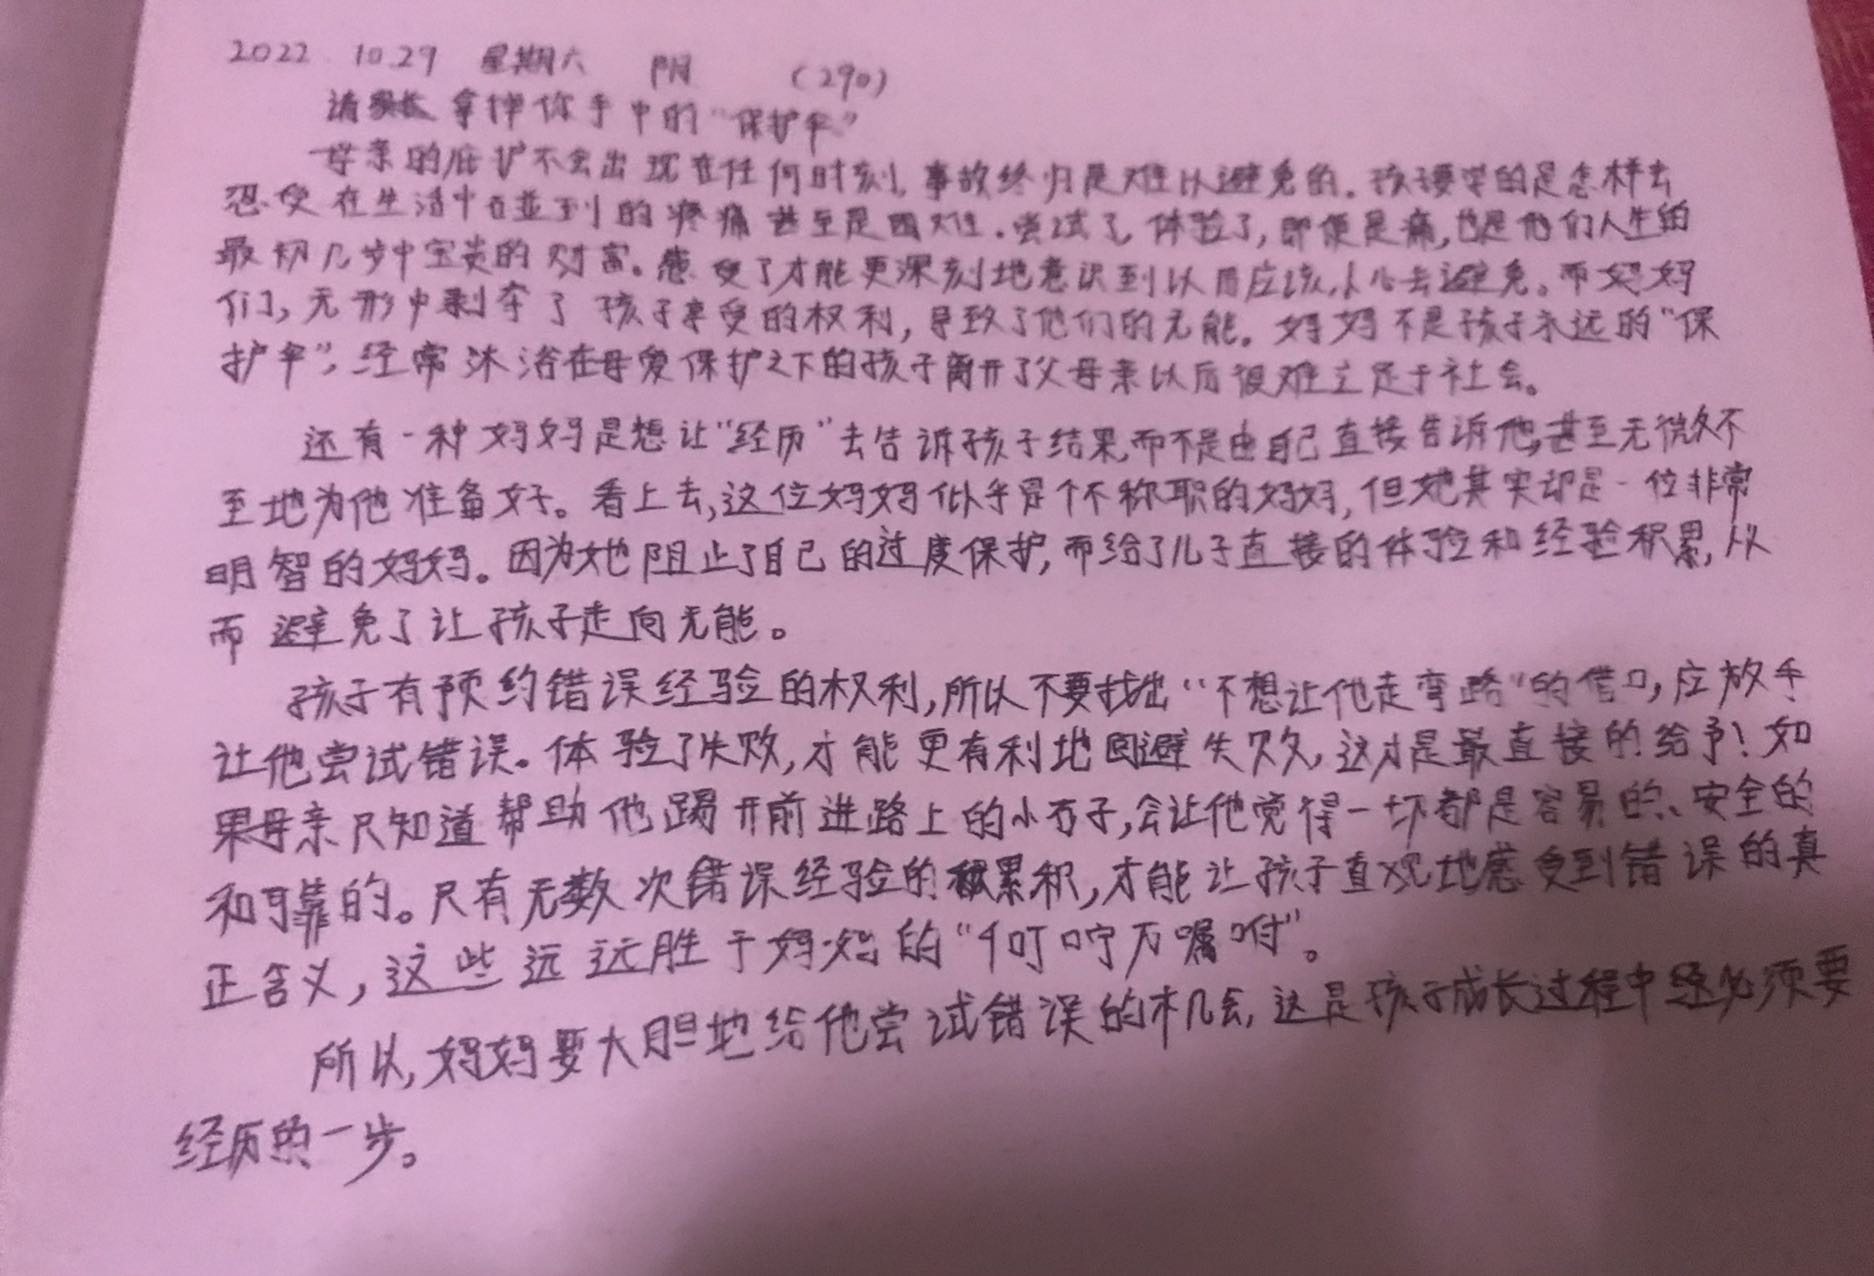 2022 10.29 星期六 阴 (290)
请 拿掉你手中的“保护伞”
母亲的庇护不会出现在任何时刻，事故终归是难以避免的。孩子要学的是怎样去
忍受在生活中 到的疼痛甚至是困难。尝试了，体验了，即便是痛，也是他们人生的
最初几步中宝贵的财富。感受了才能更深刻地意识到以后应该小心去避免。而妈妈
们，无形中剥夺了孩子享受的权利，导致了他们的无能。妈妈不是孩子永远的“保
护伞”，经常沐浴在母爱保护之下的孩子离开了父母亲以后很难立足于社会。
还有一种妈妈是想让“经历”去告诉孩子结果，而不是由自己直接告诉他，甚至无微不
至地为他准备好。看上去，这位妈妈似乎是个不称职的妈妈，但她其实却是一位非常
明智的妈妈。因为她阻止了自己的过度保护，而给了儿子直接的体验和经验积累，从
而避免了让孩子走向无能。
孩子有预约错误经验的权利，所以不要找出“不想让他走弯路”的借口，应放手
让他尝试错误。体验了失败，才能更有利地回避失败，这才是最直接的给予！如
果母亲只知道帮助他踢开前进路上的小石子，会让他觉得一切都是容易的、安全的
和可靠的。只有无数次错误经验的累积，才能让孩子直观地感受到错误的真
正含义，这些远远胜于妈妈的“千叮咛万嘱咐”。
所以，妈妈要大胆地给他尝试错误的机会，这是孩子成长过程中必须要
经历的一步。